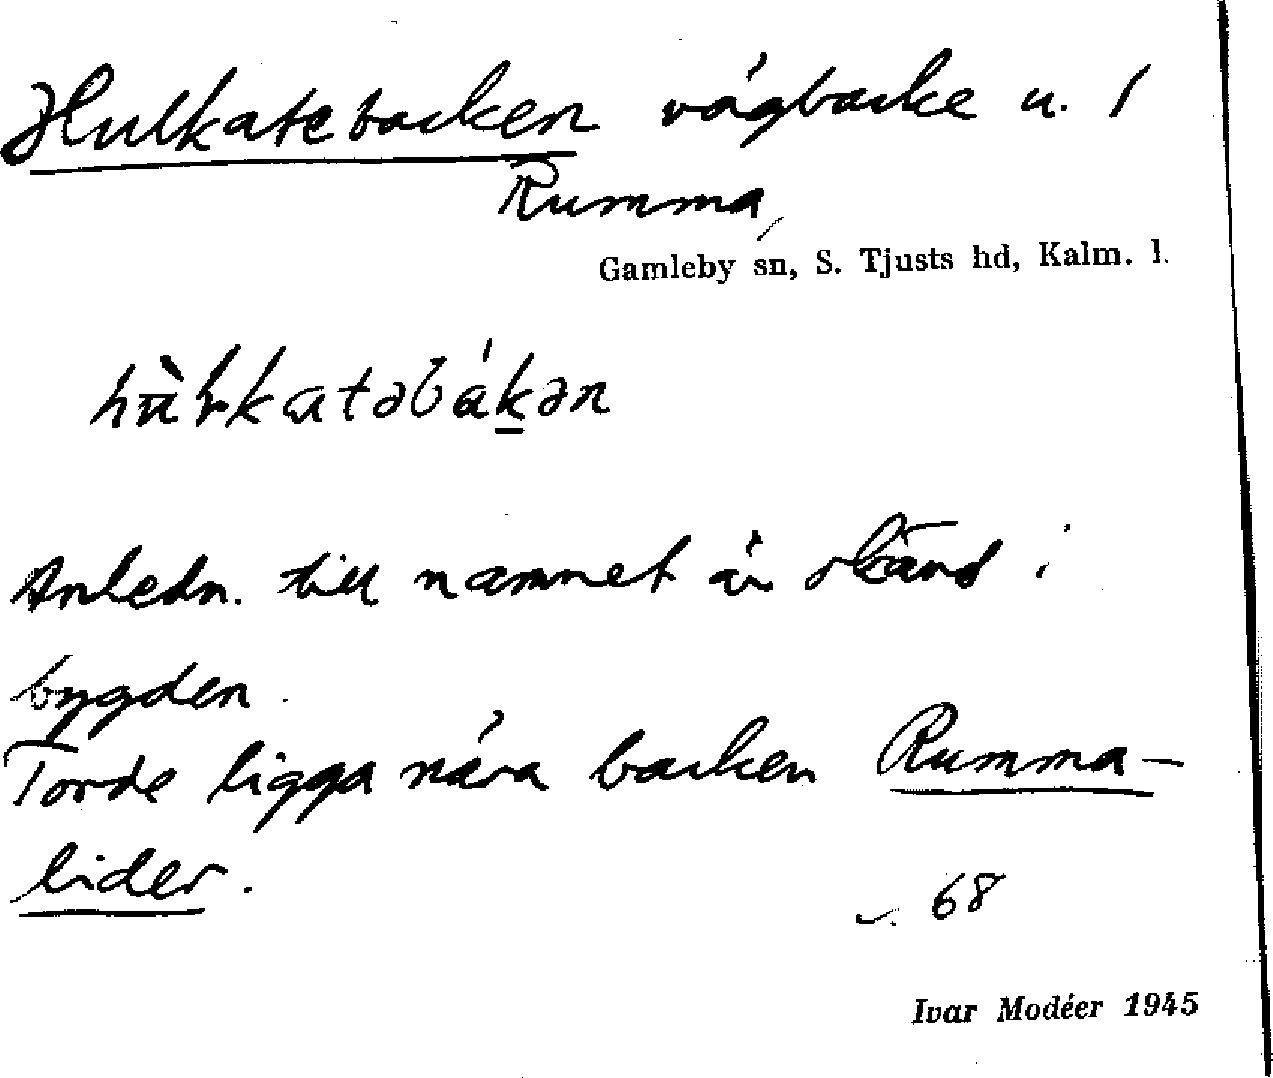 Hulkatebacken vägbacke u. 1
Rumma,
Gamleby sn, S. Tjusts hd, Kalm. l.
Anledn. till namnet är okänd i
bygden.
Torde ligga nära backen Rumma-
lider.
68
Ivar Modéer 1945